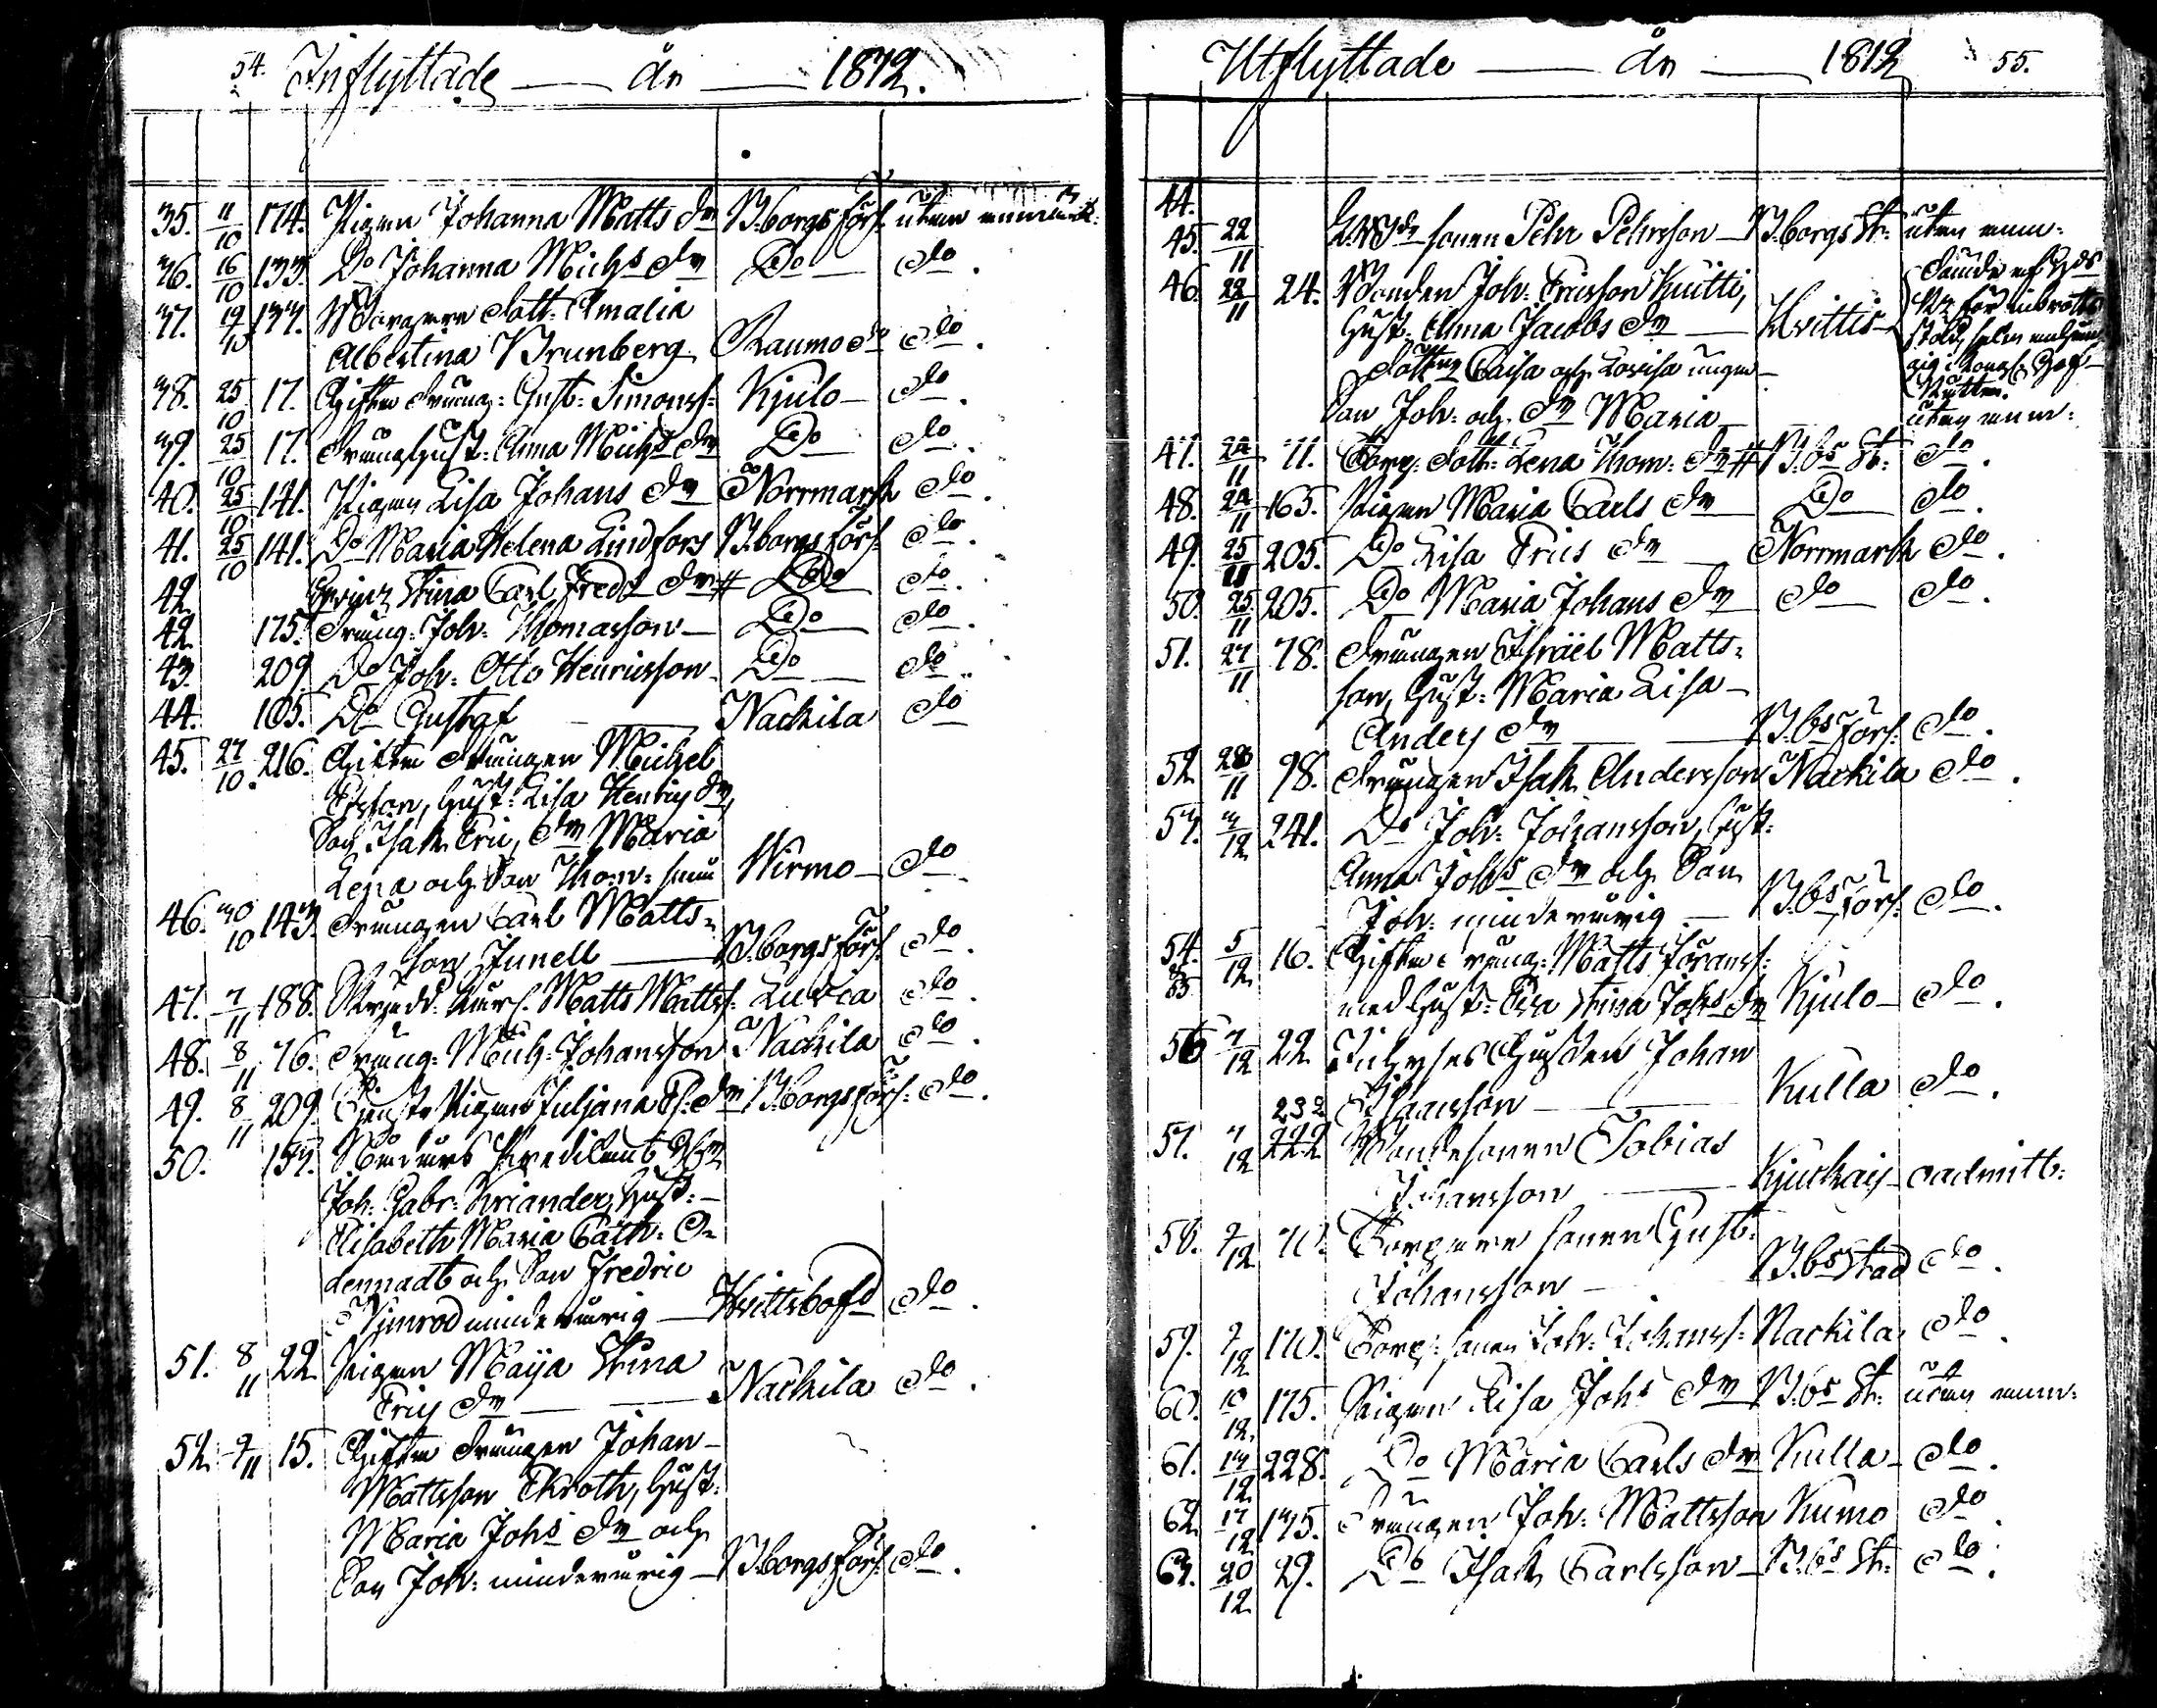 54. Inflyttade — år — 1872.
35. 11/10 174. Pigan Johanna Matts dr B:borgs förs: utan anmärk:
36. 16/10 133. Do Johanna Michs dr Do do.
37. 19/10 137. Torparedott: Amalia
Albertina Brunberg Raumo do.
38. 25/10 17. Gifte dräng: Gust: Simonss: Kjulo do.
39. 25/10 17. Dräng hust: Anna Michs dr Do do.
40. 25/10 141. Pigan Lisa Johans dr Norrmark do.
41. 25/10 141. Do Maria Helena Lindfors B:borgs förs: do.
42 Stina Carl Fredr dr # Do do.
42. 175. Dräng: Joh: Thomasson Do do.
43. 209 Do Joh: Otto Henricsson Do do.
44. 105. Do Gustaf Nackila do
45. 27/10. 216. Gifte drängen Michel
Ersson, hust: Lisa Henrics dr,
Son Isak Eric, dr Maria
Lena och Son Thom: Wirmo do
46. 30/10 143. Drängen Carl Matts-
son Junell B:borgs förs: do.
47. 7/11 188. Matts Mattss: Luvia do.
48. 8/11 76. Dräng: Mich: Johansson Nackila do.
49. 8/11 209. Pigan Juljana E: dr B:borgs förs: do.
50. 157.
Joh: Gabr: Kriander, hust:
Elisabeth Maria Cath: O-
dennadt och Son Fredric
Nimrod minderårig Hvittisbofd do.
51. 8/11 22 Pigan Maija Stina
Erics dr Nackila do.
52. 9/11 15. Gifte drängen Johan
Mattsson Ekroth, hust:
Maria Johs dr och
Son Joh: minderårig B:borgs förs: do.
Utflyttade — år — 1872 55.
44.
45. 22/11 sonen Pehr Pehrsson B:borgs St: utan anm:
46. 22/11 24. Bonden Joh: Ericsson Knitti,
hust: Anna Jacobs dr Hvittis
Caisa och Lovisa
Son Joh: och dr Maria utan anm:
47. 22/11 11. Torp: dott: Lena Thom: dr # B:bs St: do.
48. 22/11 165. Pigan Maria Carls dr Do do.
49. 25/11 205. Do Lisa Erics dr Norrmark do.
50. 25/11 205. Do Maria Johans dr do do.
51. 27/11 78. Drängen Israël Matts-
son, hust: Maria Lisa
Anders dr B:bs förs: do.
52 28/11 98. Drängen Isak Andersson Nackila do.
53. 3/12 241. Do Joh: Johansson, hust:
Anna Johs dr och Son
Joh: minderårig B:bs förs: do.
54. 5/12 16. Gifte dräng: Matts Göranss:
55
med hust: Eva Stina Johs dr Kjulo do.
56 7/12 22 Johan
Isacsson Kulla do.
232
57. 7/12 222 Bondesonen Tobias
Johansson Kjuckais oadmitt:
58. 9/12 70. Torpare sonen Gust:
Johansson B:bs stad do.
59. 9/12 170. Torp: sonen Joh: Johanss: Nackila do.
60. 10/12 175. Pigan Lisa Johs dr B:bs St: utan anm:
61. 14/12 228. Do Maria Carls dr Kulla do.
62. 17/12 175. Drängen Joh: Mattsson Kumo do.
63. 20/12 29. Do Isak Carlsson B:bs St: do.